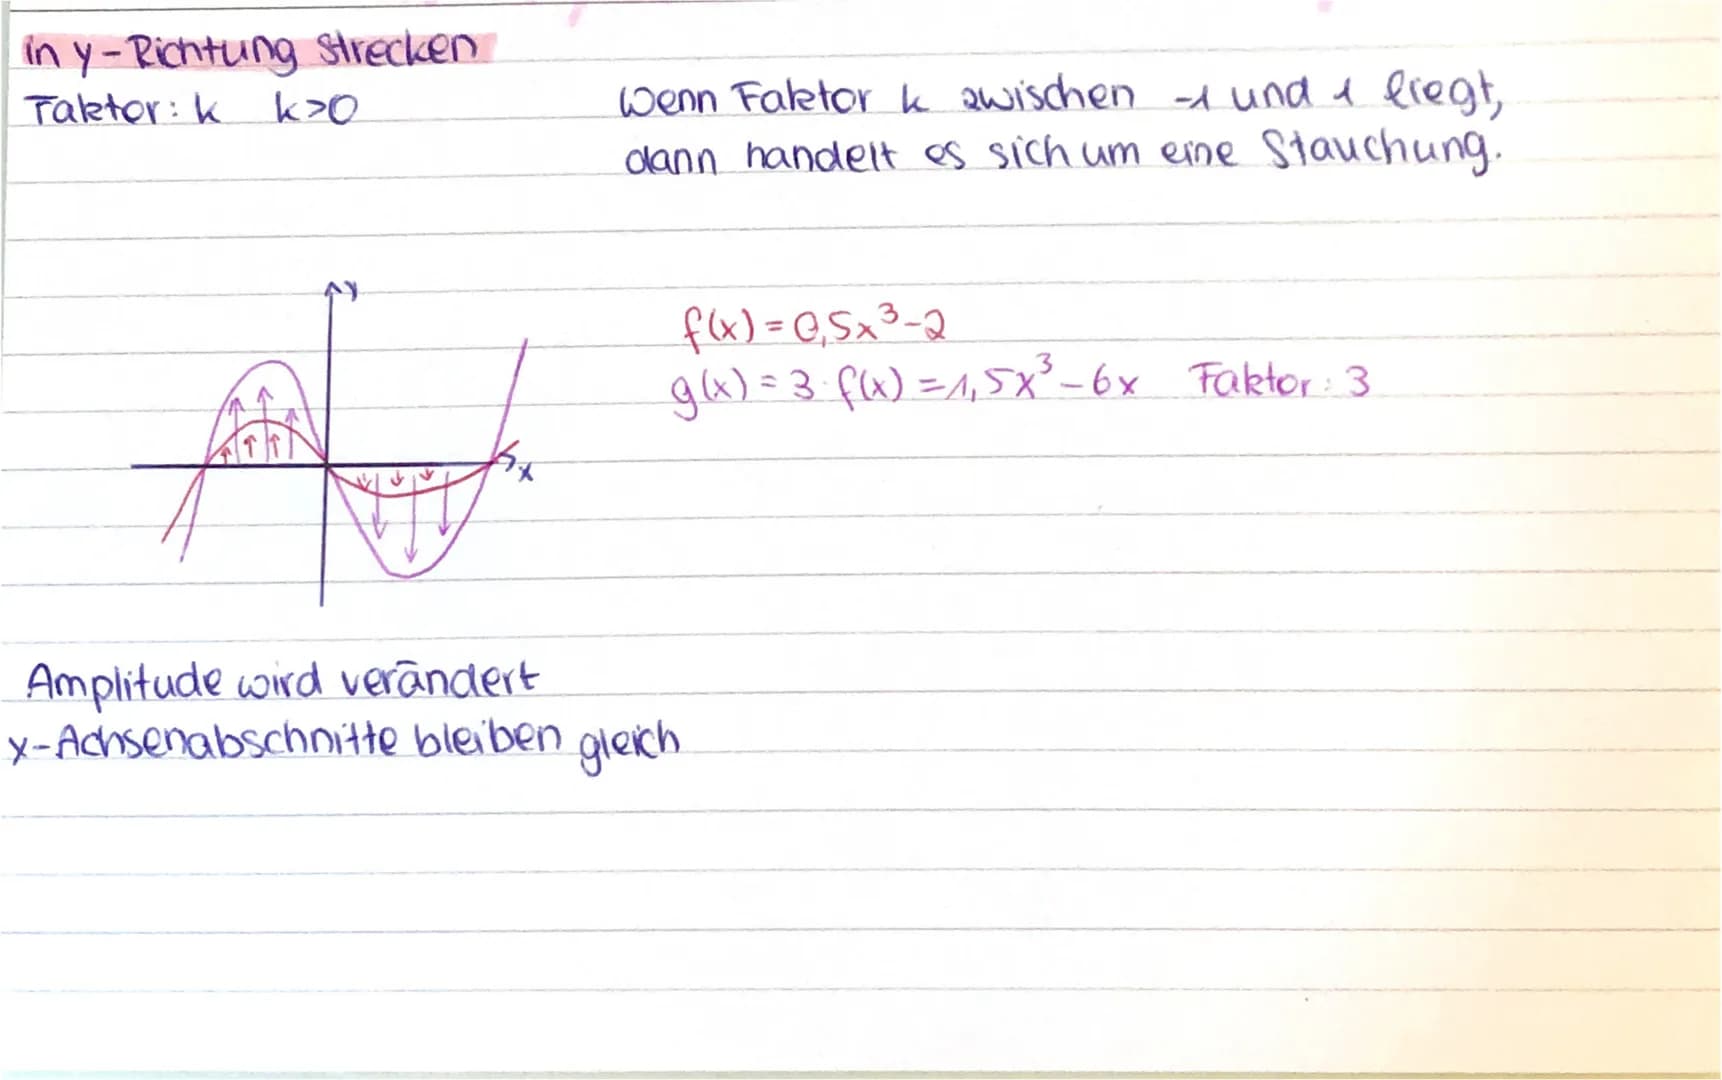 in y-Richtung strecken
Faktor: k k>0
Wenn Faktor k zwischen -1 und 1 liegt,
dann handelt es sich um eine Stauchung.
y
f(x) = 0,5x³-2
g(x) = 3·f(x) = 1,5x³-6x Faktor: 3
x
Amplitude wird verändert
x-Achsenabschnitte bleiben gleich